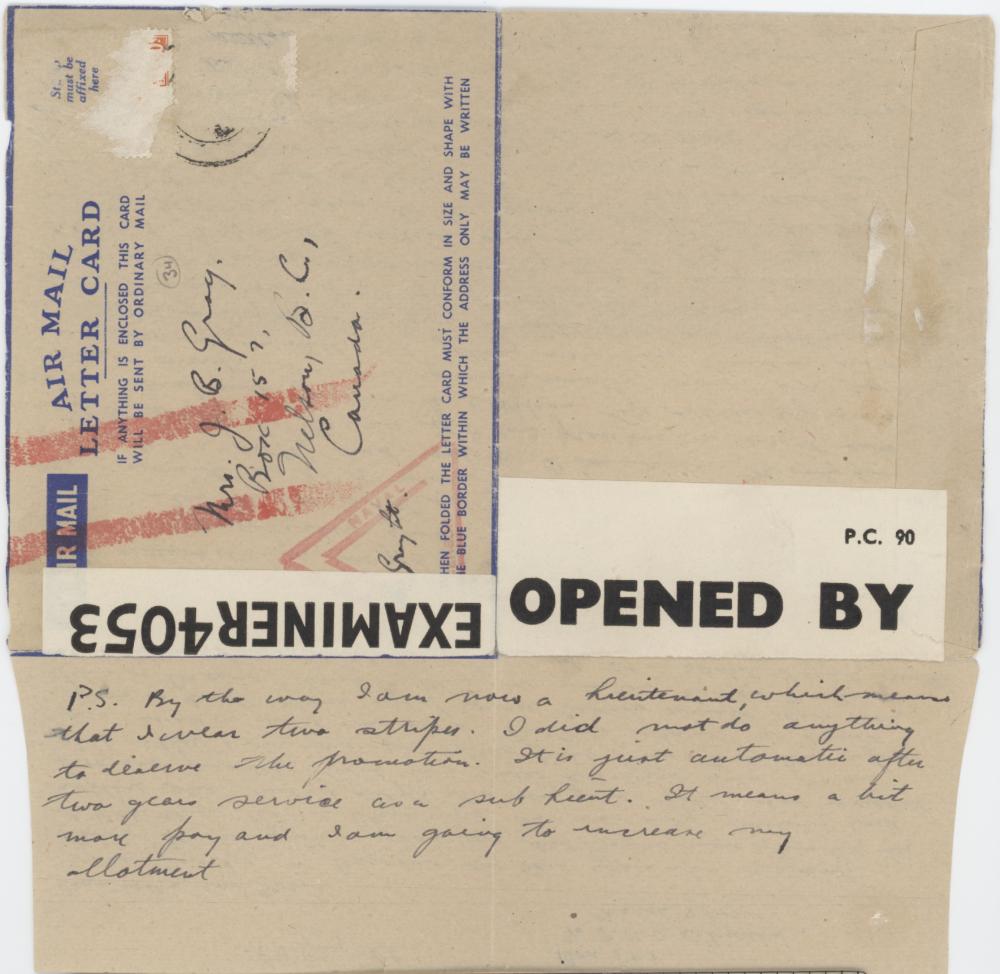 must be
affixed
here
AIR MAIL
LETTER CARD
IF ANYTHING IS ENCLOSED THIS CARD
WILL BE SENT BY ORDINARY MAIL
34
Mrs. J. B. Gray.
Box 157,
Nelson, B.C.,
Canada.
IR MAIL
HEN FOLDED THE LETTER CARD MUST CONFORM IN SIZE AND SHAPE WITH
E BLUE BORDER WITHIN WHICH THE ADDRESS ONLY MAY BE WRITTEN
EXAMINER 4053
P.C. 90
OPENED BY
P.S. By the way I am now a lieutenant, which means
that I wear two stripes. I did not do anything
to deserve the promotion. It is just automatic after
two years service as a sub lieut. It means a bit
more pay and I am going to increase my
allotment